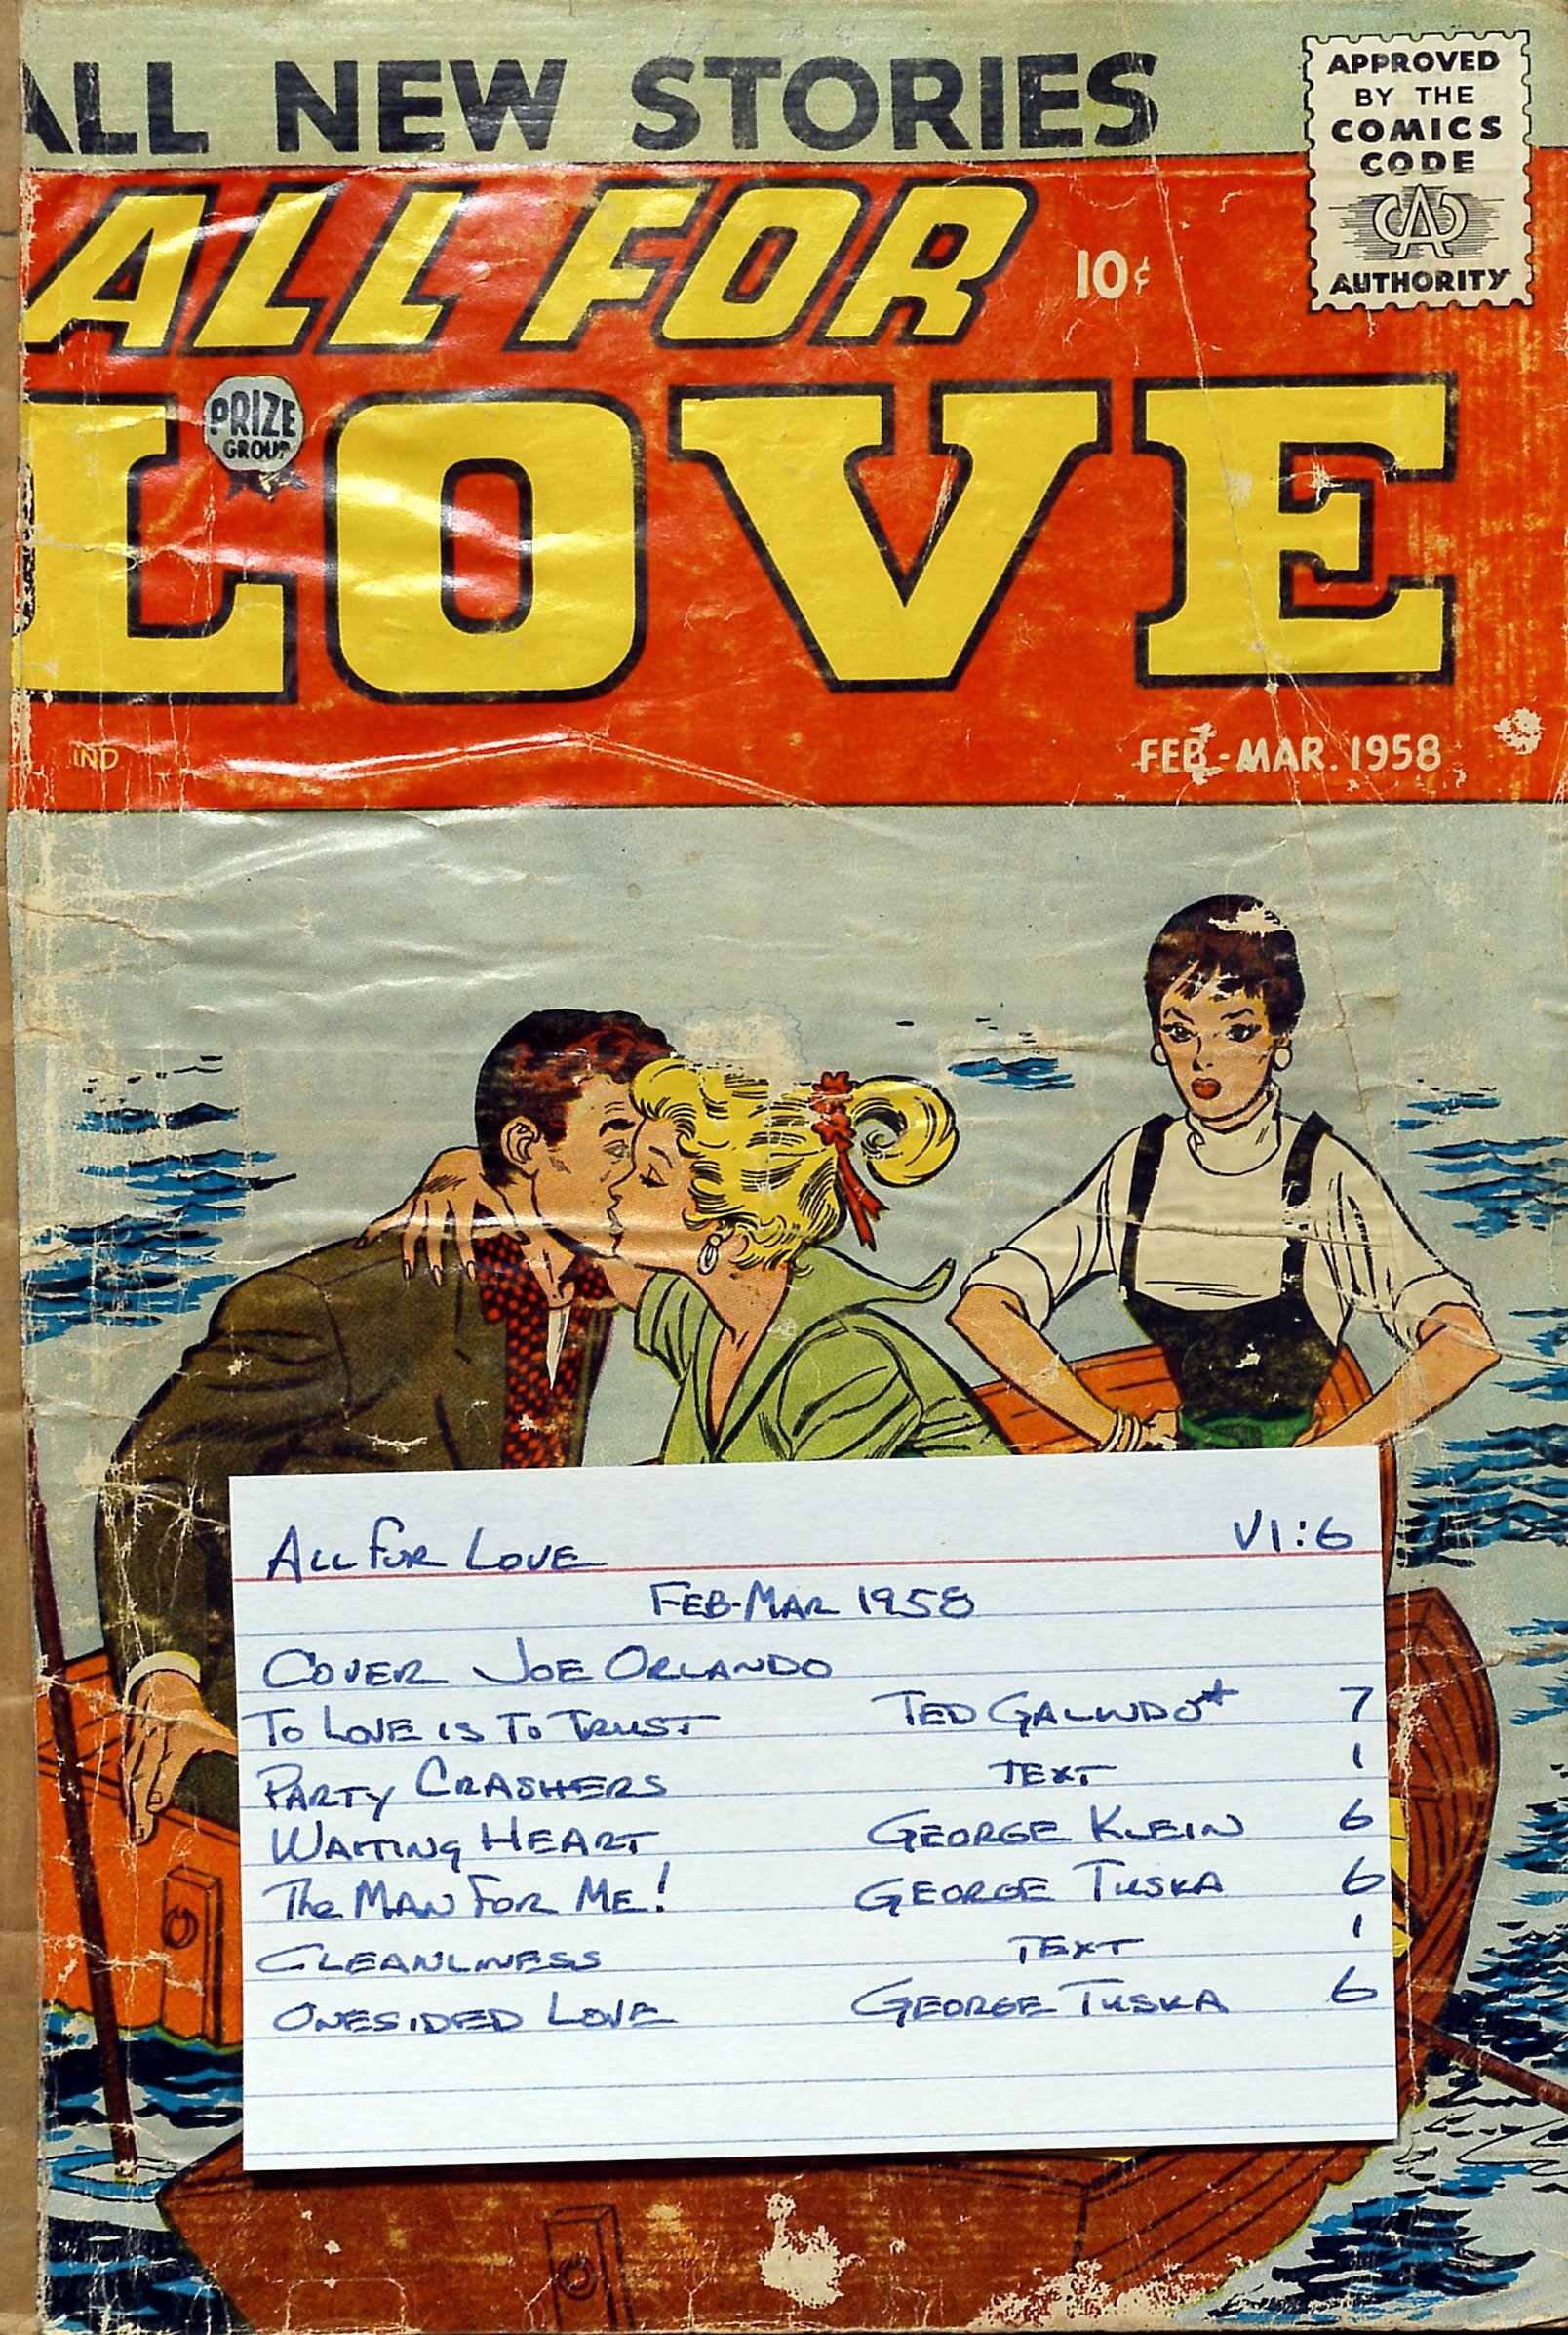 ALL NEW STORIES
APPROVED
BY THE
COMICS
CODE
CA
AUTHORITY
ALL FOR
10¢
LOVE
PRIZE
GROUP
IND
FEB.-MAR. 1958
ALL FOR LOVE V1:6
FEB-MAR 1958
COVER JOE ORLANDO
TO LOVE IS TO TRUST TED GALINDO* 7
PARTY CRASHERS TEXT 1
WAITING HEART GEORGE KLEIN 6
The MAN FOR ME! GEORGE TUSKA 6
CLEANLINESS TEXT 1
ONESIDED LOVE GEORGE TUSKA 6